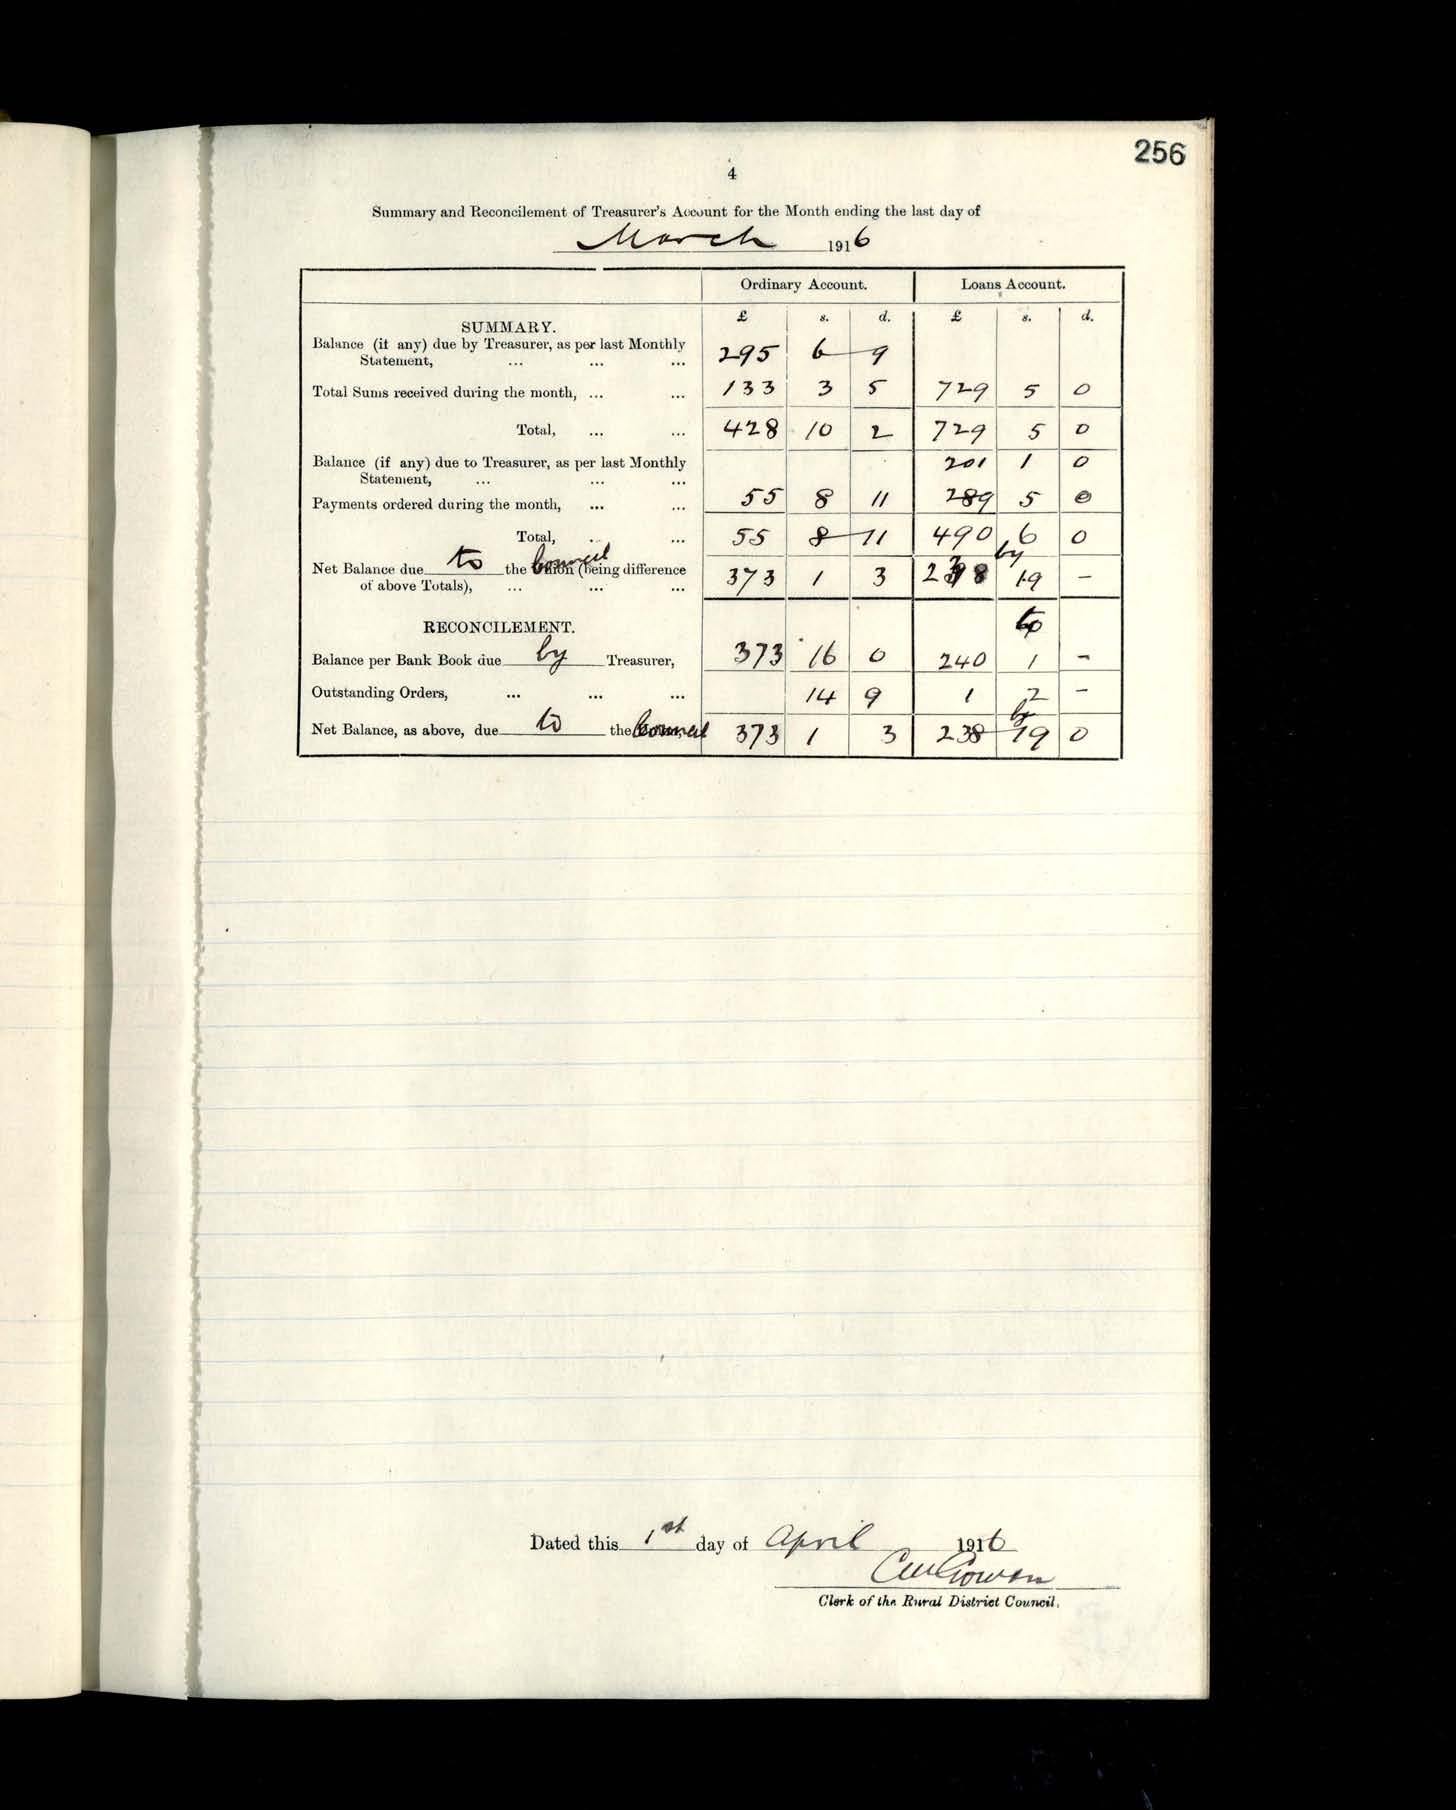 256
4
Summary and Reconcilement of Treasurer's Account for the Month ending the last day of
March 1916
Ordinary Account. Loans Account.
£ s. d. £ s. d.
SUMMARY.
Balance (if any) due by Treasurer, as per last Monthly
Statement, ... ... ... 295 6 9
Total Sums received during the month, ... ... 133 3 5 729 5 0
Total, ... ... 428 10 2 729 5 0
Balance (if any) due to Treasurer, as per last Monthly 201 1 0
Statement, ... ... ...
Payments ordered during the month, ... ... 55 8 11 289 5 0
Total, ... ... 55 8 11 490 6 0
by
Net Balance due to the Council (being difference 373 1 3 238 19 -
of above Totals), ... ... ...
RECONCILEMENT. to
Balance per Bank Book due by Treasurer, 373 16 0 240 1 -
Outstanding Orders, ... ... ... 14 9 1 2 -
by
Net Balance, as above, due to the Council 373 1 3 238 19 0
Dated this 1st day of April 1916
Gowan
Clerk of the Rural District Council.